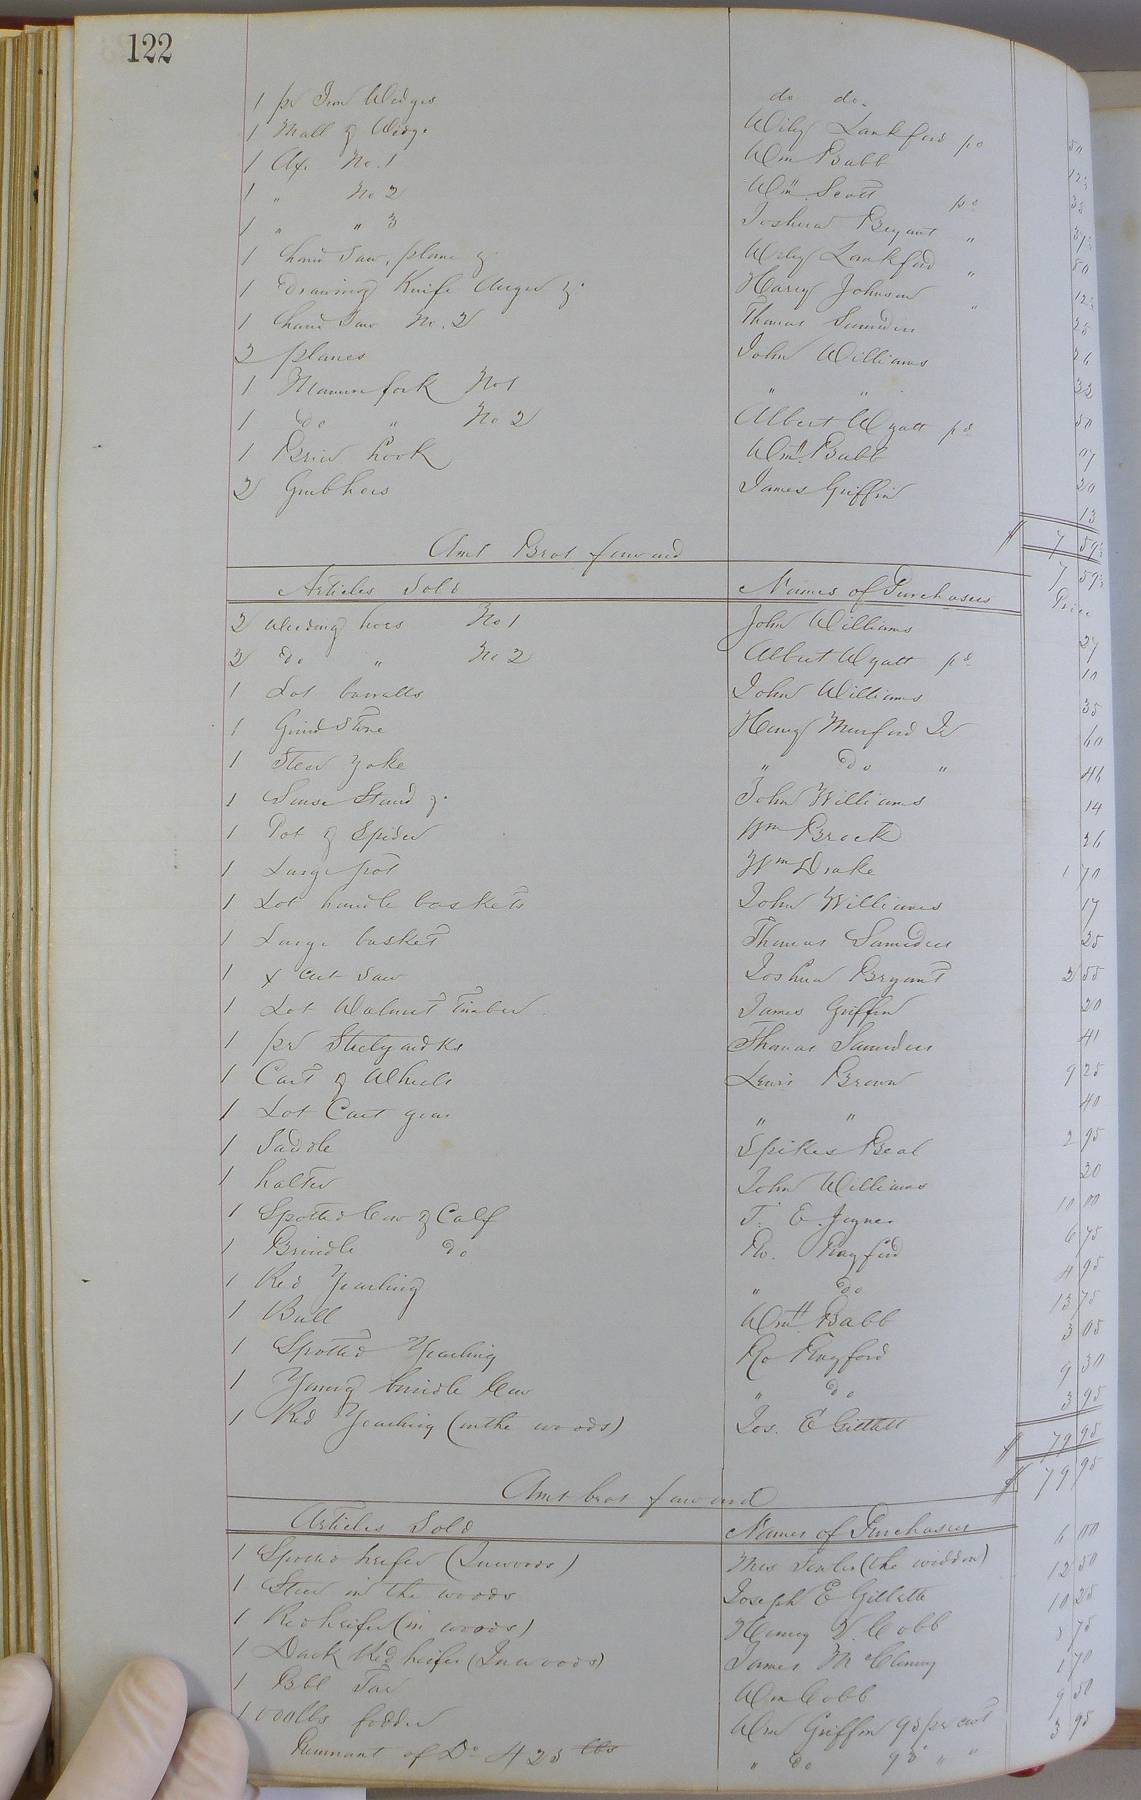 122
1 pr Iron Wedges do do
1 Mall & Wedge Wiley Lankford pd 50
1 Ax No. 1 Wm Babb 12½
1 " No 2 Wm H Scott pd 35
1 " " 3 Joshua Bryant " 31½
1 hand Saw, plane & Wiley Lankford " 50
1 Drawing Knife Auger &c Harry Johnson " 12½
1 hand Saw No. 2 Thomas Saunders 25
2 planes John Williams 26
1 Manure fork No 1 " " 32
1 do " No 2 Albert Wyatt pd 50
1 Brier hook Wm H Babb 07
2 Grubhoes James Griffin 20
13
Amt Brot forward $ 7 59½
7 59½
Articles Sold Names of Purchasers Price
2 Weeding hoes No 1 John Williams 27
2 do " No 2 Albert Wyatt pd 10
1 Lot barrells John Williams 35
1 Grind Stone Henry Munford Jr 60
1 Steer Yoke " do " 46
1 Stand &c John Williams 14
1 Pot & Spider Wm Brock 26
1 Large pot Wm Drake 1 70
1 Lot handle baskets John Williams 17
1 Large basket Thomas Saunders 25
1 x cut Saw Joshua Bryant 2 55
1 Lot Walnut Timber James Griffin 20
1 pr Thomas Saunders 41
1 Cart & Wheels Lewis Brown 9 25
1 Lot Cart gear " " 40
1 Saddle Spikes Beal 2 95
1 halter John Williams 20
1 Spotted Cow & Calf T. E. Joyner 10 00
1 Brindle do Ro. Rayford 6 75
1 Red Yearling " do 4 95
1 Bull Wm H Babb 13 75
1 Spotted Yearling Ro Rayford 3 05
1 Young brindle Cow " do 9 30
1 Red Yearling (in the woods) Jos. E Gillett 3 95
$ 79 95
Amt brot forward $ 79 95
Articles Sold Names of Purchasers
1 Spotted heifer (In woods) Mrs (the widdow) 6 00
1 Steer in the woods Joseph E Gillette 12 50
1 Red heifer (in woods) Henry D. Cobb 10 25
1 Dark Red heifer (In woods) James McCleney 5 75
1 Bbl Tar Wm Cobb 1 70
1000 lbs fodder Wm Griffin 95 pr cwt 9 50
Remnant of Do 425 lbs " do 93 " " 3 95